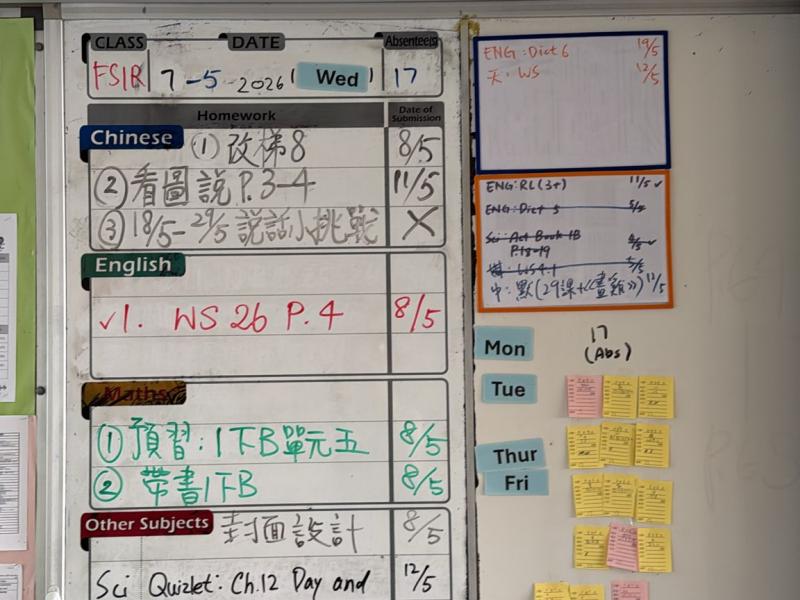 CLASS DATE Absentee(s)
FSIR 7-5-2026 ( Wed ) 17
Homework Date of Submission
Chinese
① 改梯8 8/5
② 看圖說 P.3-4 11/5
③ 18/5-29/5 說話小挑戰 X
English
✓1. WS 26 P.4 8/5
Maths
① 預習:1下B單元五 8/5
② 帶書1下B 8/5
Other Subjects
封面設計 8/5
Sci Quizlet: Ch.12 Day and 12/5
ENG: Dict 6 19/5
WS 12/5
ENG: RL (3+) 11/5 ✓
ENG: Dict 5 5/5
Sci: Act Book 1B
P.18-19
WS4.1
中: 默(29課+《畫雞》) 12/5
Mon
17
(Abs)
Tue
Thur
Fri